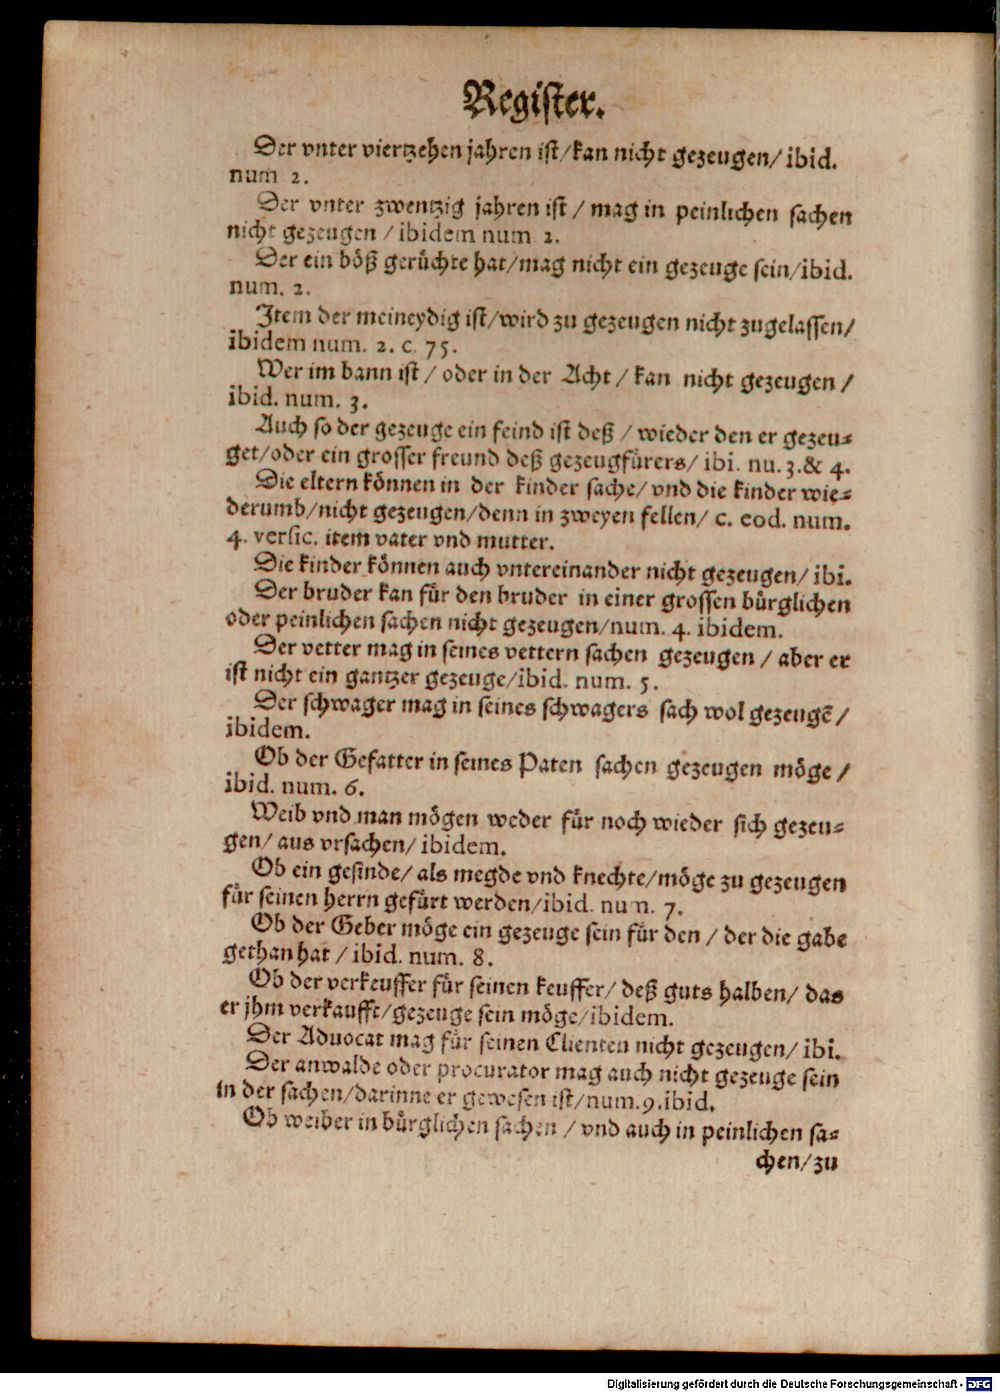 Register.
Der vnter viertzehen jahren ist/kan nicht gezeugen/ibid.
num 2.
Der vnter zwentzig jahren ist / mag in peinlichen sachen
nicht gezeugen / ibidem num 2.
Der ein böß gerüchte hat/mag nicht ein gezeuge sein/ibid.
num. 2.
Item der meineydig ist/wird zu gezeugen nicht zugelassen/
ibidem num. 2. c. 75.
Wer im bann ist / oder in der Acht / kan nicht gezeugen /
ibid. num. 3.
Auch so der gezeuge ein feind ist deß / wieder den er gezeu-
get/oder ein grosser freund deß gezeugfürers/ ibi. nu. 3. & 4.
Die eltern können in der kinder sache/ vnd die kinder wie-
derumb/nicht gezeugen/denn in zweyen fellen/ c. eod. num.
4. versic. item vater vnd mutter.
Die kinder können auch vntereinander nicht gezeugen/ ibi.
Der bruder kan für den bruder in einer grossen bürglichen
oder peinlichen sachen nicht gezeugen/num. 4. ibidem.
Der vetter mag in seines vettern sachen gezeugen / aber er
ist nicht ein gantzer gezeuge/ibid. num. 5.
Der schwager mag in seines schwagers sach wol gezeugē /
ibidem.
Ob der Gefatter in seines Paten sachen gezeugen möge /
ibid. num. 6.
Weib vnd man mögen weder für noch wieder sich gezeu-
gen/ aus vrsachen/ ibidem.
Ob ein gesinde/ als megde vnd knechte/möge zu gezeugen
für seinen herrn gefürt werden/ibid. num. 7.
Ob der Geber möge ein gezeuge sein für den / der die gabe
gethan hat / ibid. num. 8.
Ob der verkeuffer für seinen keuffer/ deß guts halben/ das
er jhm verkaufft/gezeuge sein möge/ibidem.
Der Aduocat mag für seinen Clienten nicht gezeugen/ ibi.
Der anwalde oder procurator mag auch nicht gezeuge sein
in der sachen/darinne er gewesen ist/num. 9. ibid.
Ob weiber in bürglichen sachen / vnd auch in peinlichen sa-
chen/zu
Digitalisierung gefördert durch die Deutsche Forschungsgemeinschaft - DFG